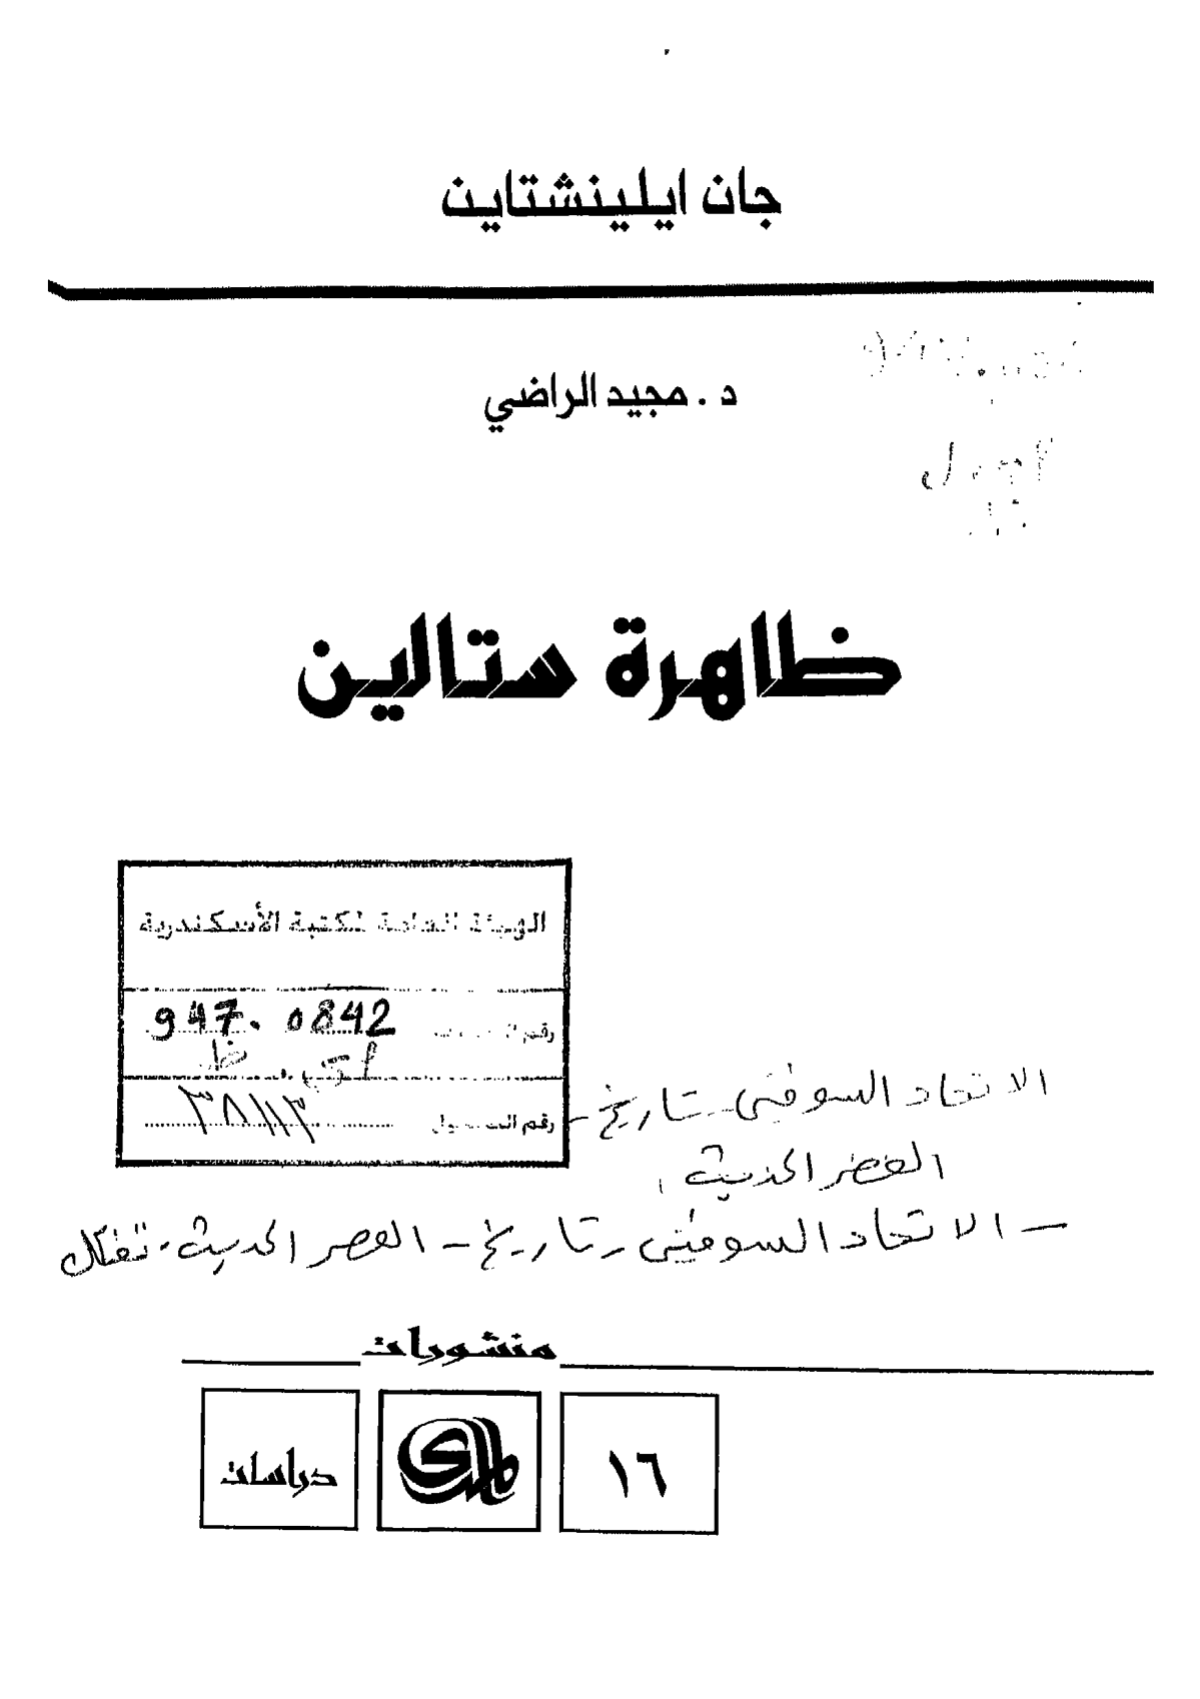 جان ايلينشتاين
د. مجيد الراضي
ظاهرة ستالين
الهيئة العامة لمكتبة الأسكندرية
رقم 947.0842
رقم التسجيل ٣٨١١٣
الاتحاد السوفيتى - تاريخ -
العصر الحديث
- الاتحاد السوفيتى - تاريخ - العصر الحديث - تفكك
منشورات
١٦
المدى
دراسات